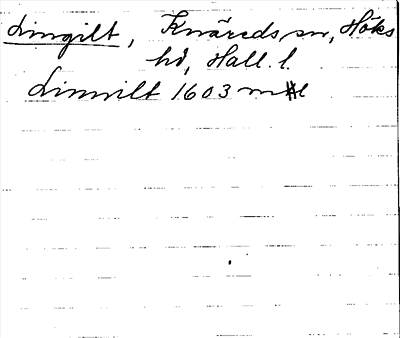 Limgilt, Knäreds sn, Höks
hd, Hall. l.
Limvilt 1603 m